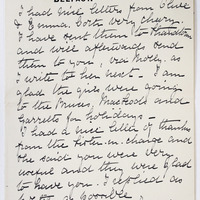 BELFAST
I had nice letters from Olive
& Emma, both very cheery.
I have sent them to
and will afterwards send
them to you, via Molly. as
I write to her next - I am
glad the girls were going
to the Muirs, MacFeeds and
Garretts for holidays -
I had a nice letter of thanks
from the sister-in-charge and
she said you were very
useful and they were glad
to have you. I replied as
as possible